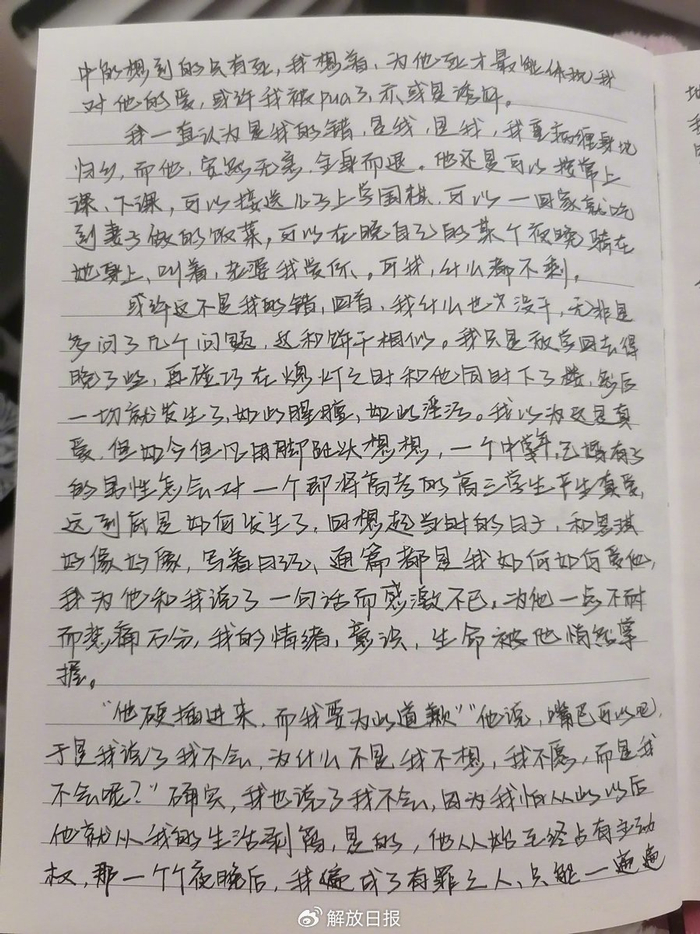 中能想到的只有死，我想着，为他死才最能体现我
对他的爱，或许我被pua了，亦或是诱奸。
我一直认为是我的错，是我，是我，我重病缠身地
归乡，而他，安然无恙，全身而退。他还是可以按常上
课、下课，可以接送儿子上学围棋，可以一回家就吃
到妻子做的饭菜，可以在晚自己的某个夜晚骑在
她身上，叫着，老婆我爱你。可我，什么都不剩。
或许这不是我的错，回首，我什么也没干，无非是
多问了几个问题，这和饼干相似。我只是放学回去得
晚了些，再碰巧在熄灯之时和他同时下了楼，然后
一切就发生了，如此腥膻，如此淫污。我以为这是真
爱，但如今但凡用脚趾头想想，一个中年，已婚有子
的男性怎会对一个即将高考的高三学生产生真爱，
这到底是如何发生了，回想起当时的日子，和思琪
好像好像，写着日记，通篇都是我如何如何爱他，
我为他和我说了一句话而感激不已，为他一点不耐
而悲痛万分，我的情绪，意识，生命被他悄然掌
握。
“他硬插进来，而我要为此道歉”“他说，嘴巴可以吧，
于是我说了我不会，为什么不是我不想，我不愿，而是我
不会呢？”确实，我也说了我不会，因为我怕从此以后
他就从我的生活剥离，是的，他从始至终占有主动
权，那一个个夜晚后，我变成了有罪之人，只能一遍遍
解放日报